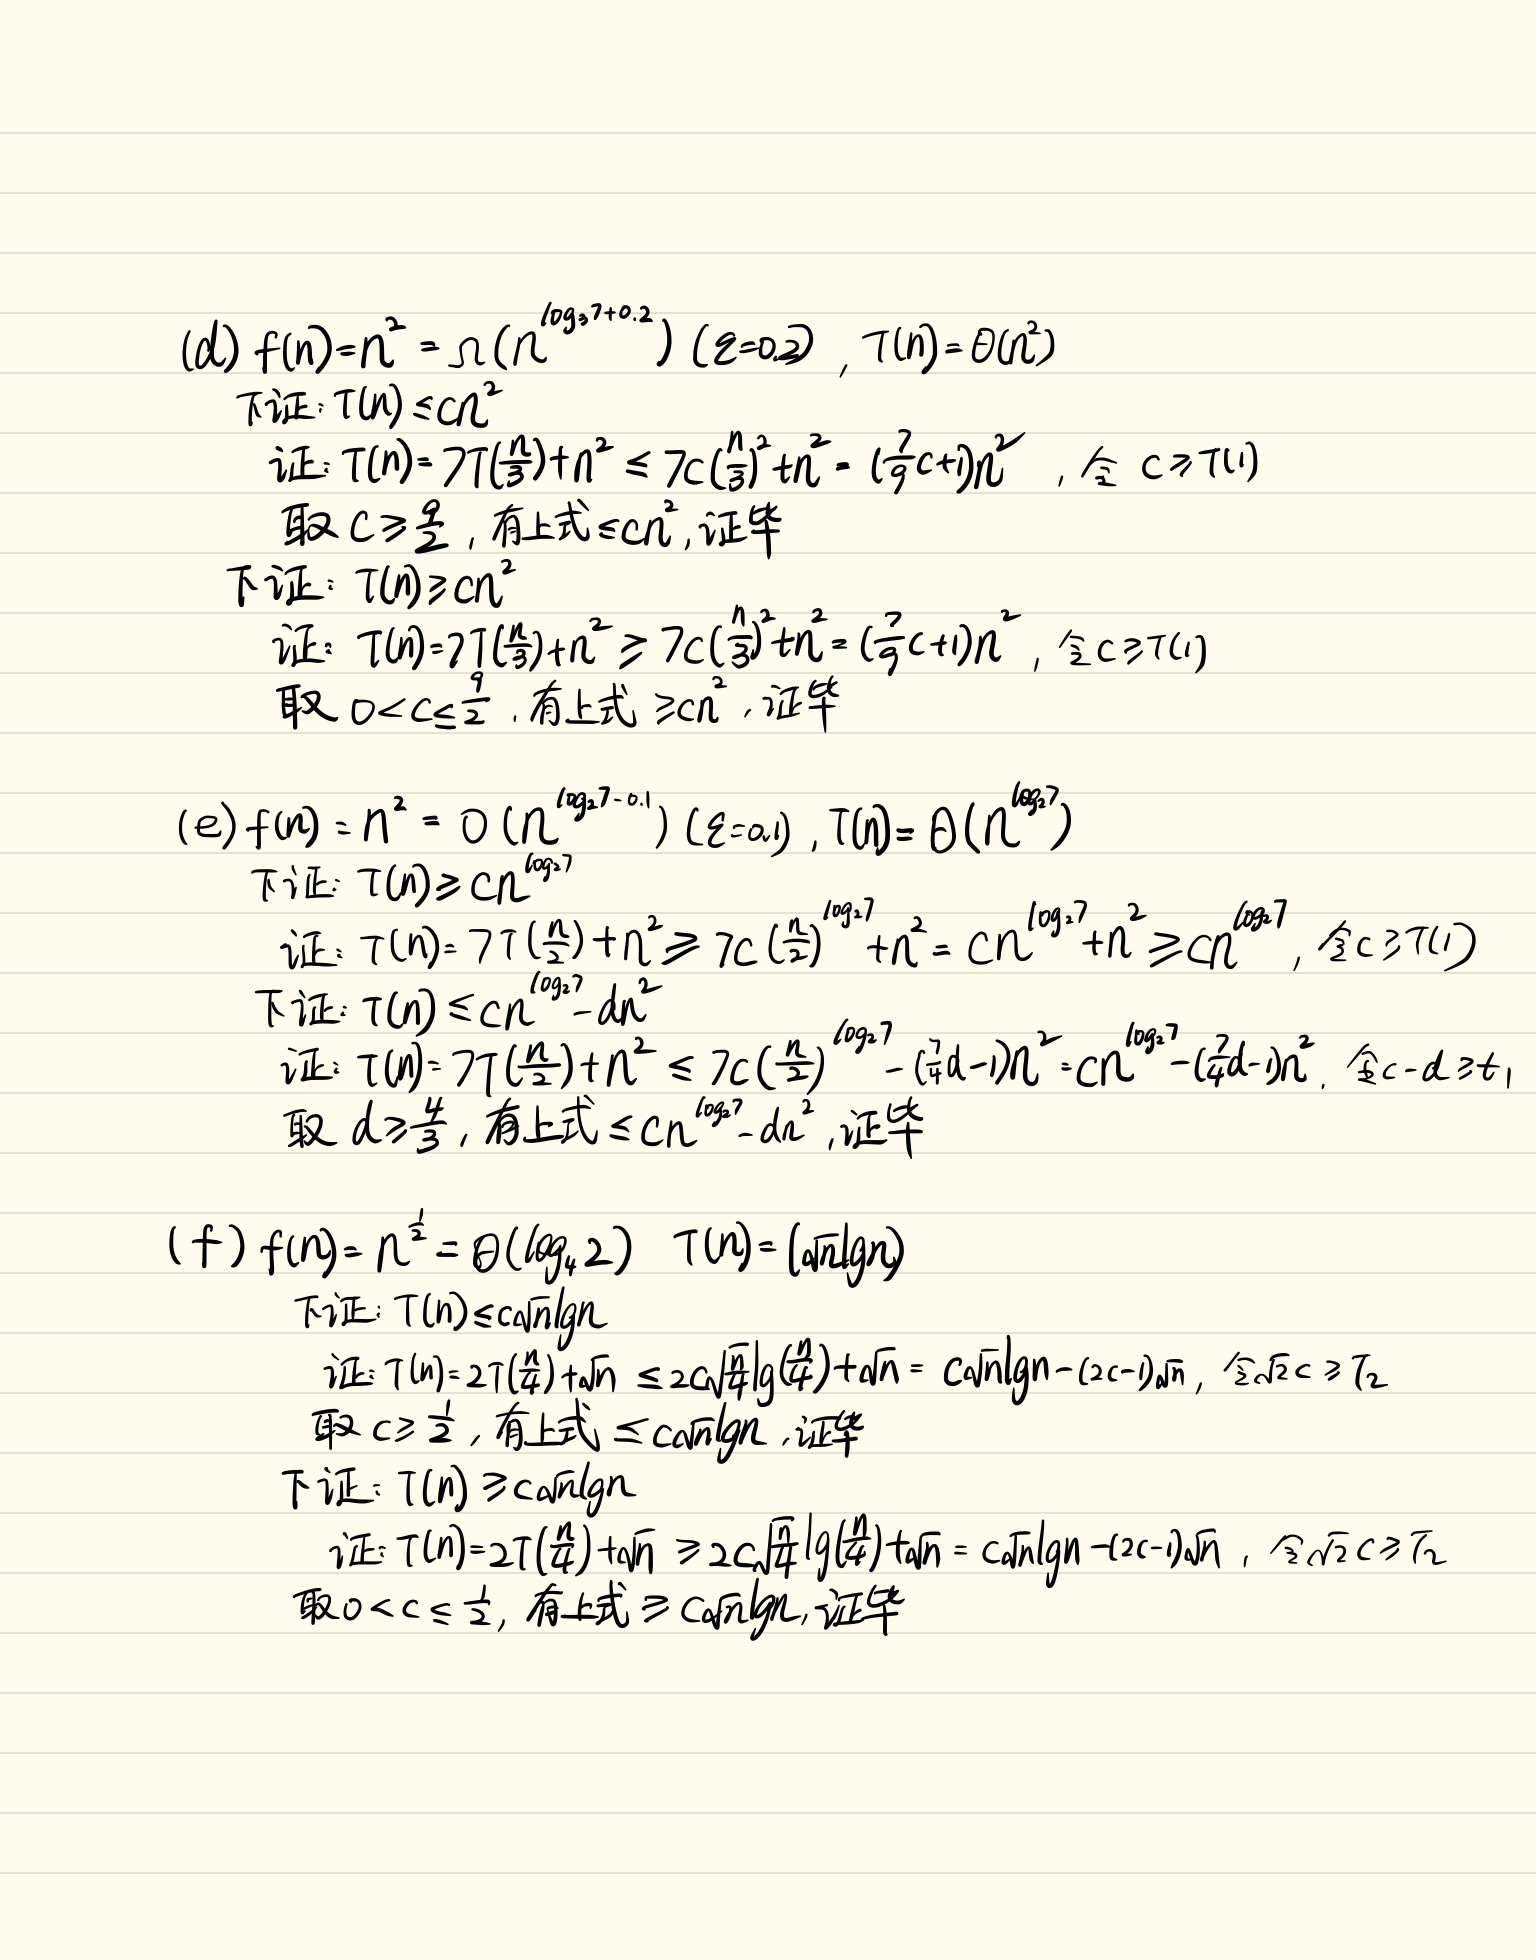 (d) f(n)=n² = Ω(n^{log₃7+0.2}) (ε=0.2), T(n)=Θ(n²)
下证: T(n)≤cn²
证: T(n)=7T(n/3)+n² ≤ 7c(n/3)²+n² = (7/9c+1)n², 令 c≥T(1)
取 c≥9/2, 有上式≤cn²,证毕
下证: T(n)≥cn²
证: T(n)=7T(n/3)+n² ≥ 7c(n/3)²+n² = (7/9c+1)n², 令c≥T(1)
取 0<c≤9/2, 有上式 ≥cn²,证毕
(e) f(n) = n² = O(n^{log₂7-0.1}) (ε=0.1), T(n)=Θ(n^{log₂7})
下证: T(n)≥cn^{log₂7}
证: T(n)=7T(n/2)+n² ≥ 7c(n/2)^{log₂7}+n² = cn^{log₂7}+n² ≥ cn^{log₂7}, 令c≥T(1)
下证: T(n) ≤cn^{log₂7}-dn²
证: T(n)=7T(n/2)+n² ≤ 7c(n/2)^{log₂7}-(7/4d-1)n²=cn^{log₂7}-(7/4d-1)n², 令c-d≥t₁
取 d≥4/3, 有上式≤cn^{log₂7}-dn²,证毕
(f) f(n)=n^{1/2}=Θ(log₄2) T(n)=(√nlgn)
下证: T(n)≤c√nlgn
证: T(n)=2T(n/4)+√n ≤2c√(n/4)lg(n/4)+√n = c√nlgn-(2c-1)√n, 令√2c≥T₂
取 c≥1/2, 有上式 ≤c√nlgn,证毕
下证: T(n) ≥c√nlgn
证: T(n)=2T(n/4)+√n ≥2c√(n/4)lg(n/4)+√n = c√nlgn-(2c-1)√n, 令√2c≥T₂
取0<c≤1/2, 有上式 ≥ c√nlgn,证毕